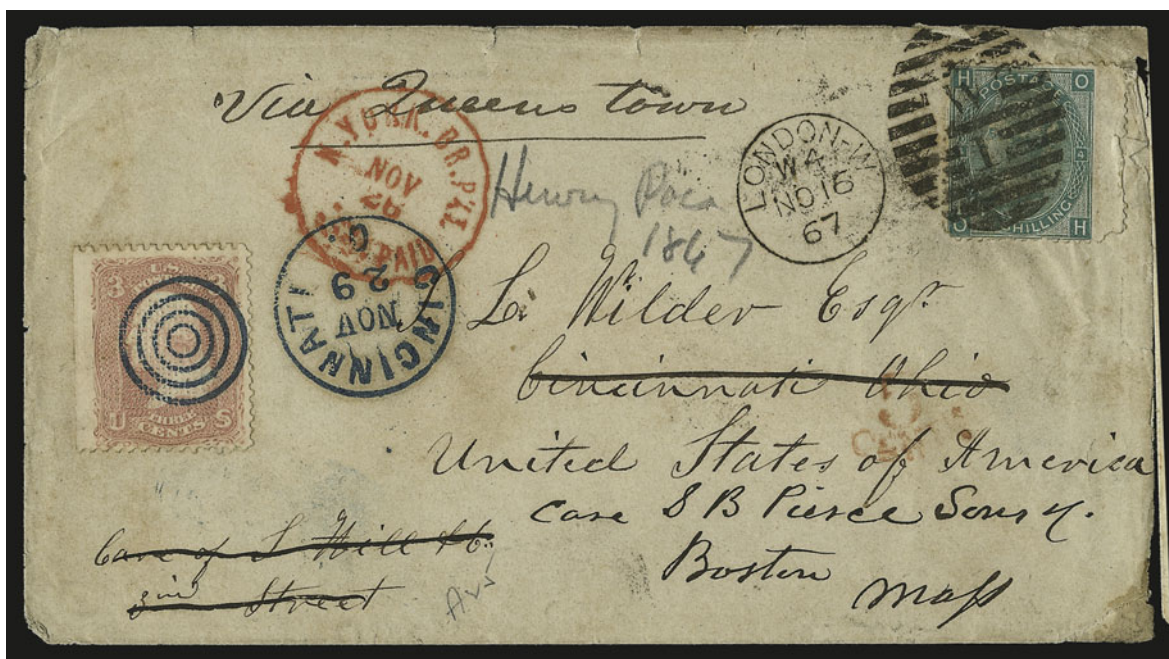 Via Queenstown
N. YORK. BR. PKT.
NOV
26
PAID
LONDON-W
W4
NO 16
67
H O
POSTAGE
4
O SHILLING H
11
Henry
1867
CINCINNATI O.
NOV
29
3
U.S.
U THREE S
CENTS
L. Wilder Esqr
Cincinnati Ohio
3
CENTS
United States of America
Care S B Pierce Sons &.
Boston
Mass
Care of S Will & Co.
Street